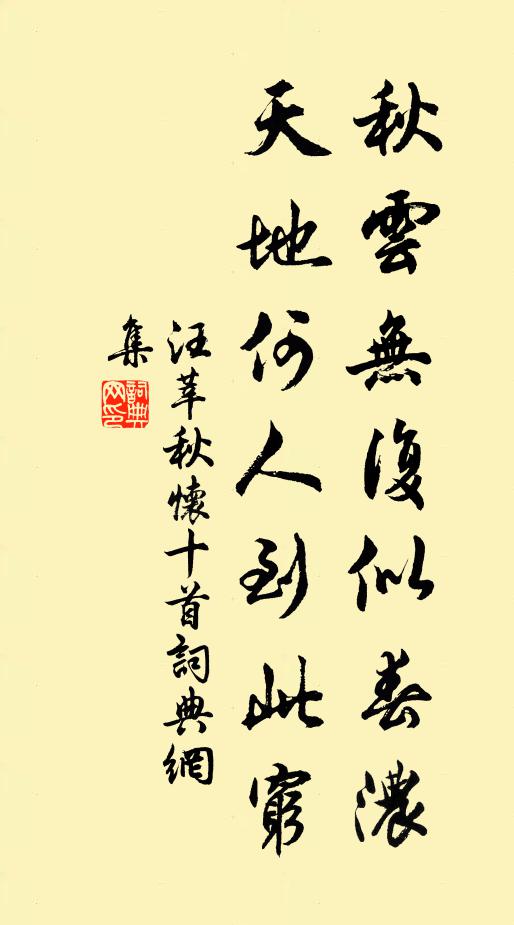 秋雲無復似春濃
天地何人到此窮
汪莘秋懷十首詞典網
集
詞典
网印